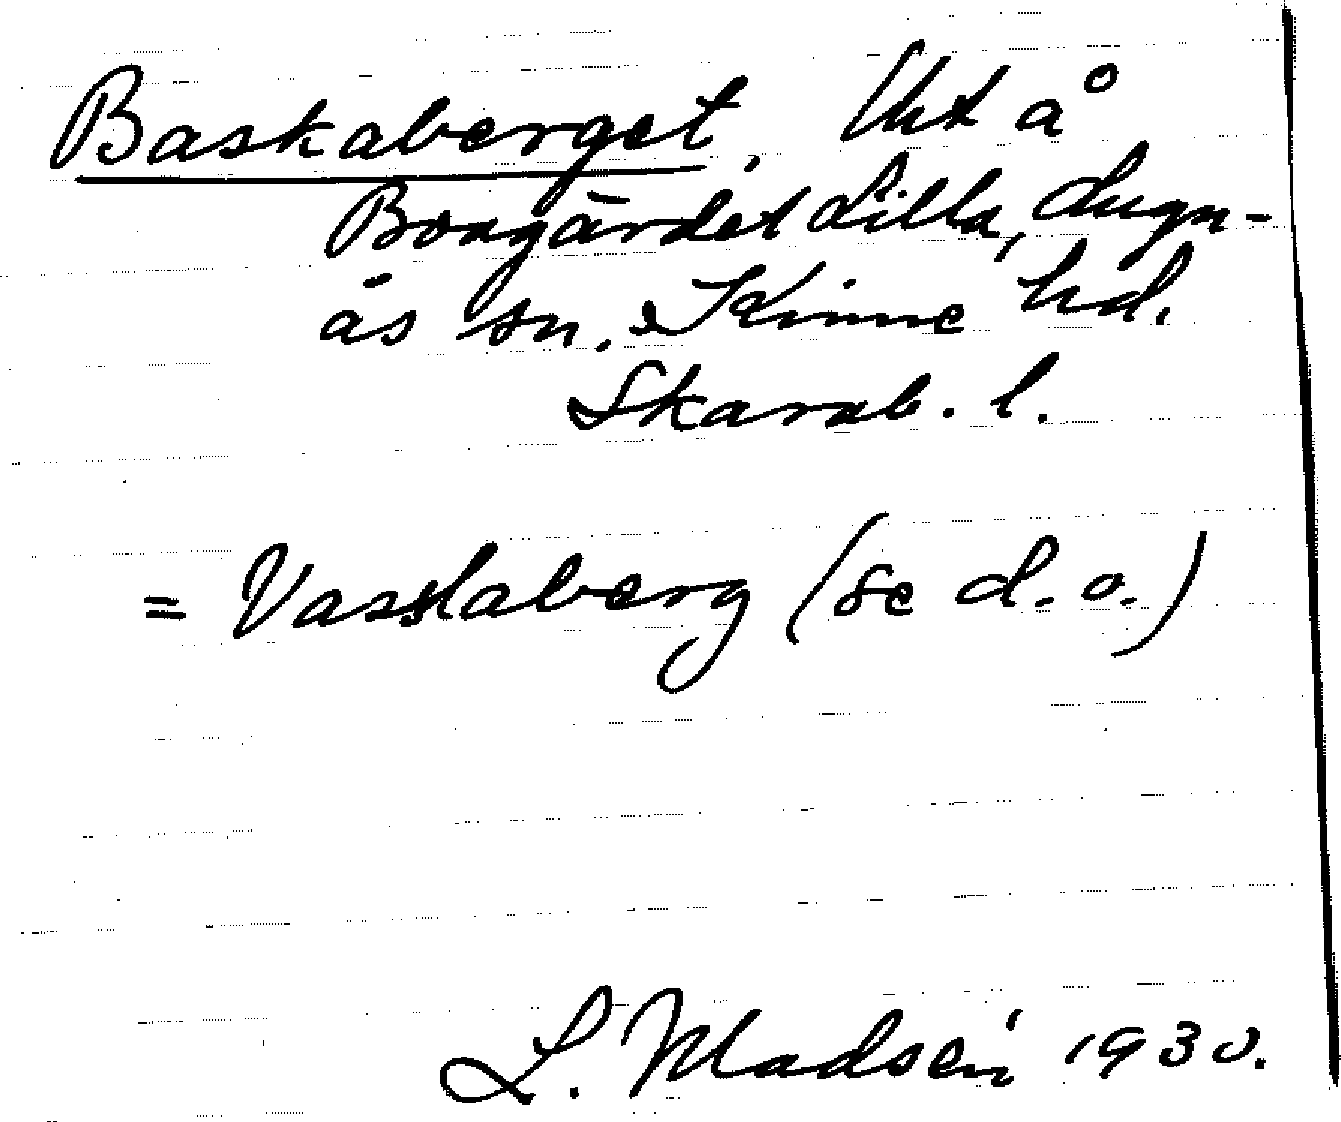 Baskaberget, å
Lilla, Lugn-
ås sn. Kinne hd.
Skarab. l.
= Vasslaberg (se d. o.)
L. Madsén 1930.